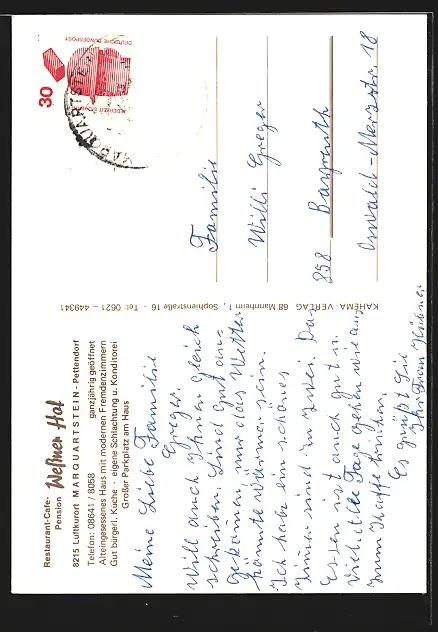 Restaurant-Cafe-
Pension
Weßner Hof
8215 Luftkurort MARQUARTSTEIN - Pettendorf
Telefon: 08641 / 8058 ganzjährig geöffnet
Alteingesessenes Haus mit modernen Fremdenzimmern
Gut bürgerl. Küche - eigene Schlachtung u. Konditorei
Großer Parkplatz am Haus
Meine Liebe Familie
Greger.
Will auch Ihnen gleich
schreiben. Sind gut an-
gekommen nur das Wetter
könnte Wärmer sein.
Ich habe ein schönes
Zimmer sind zu zwei. Das
Essen ist auch gut u.
Viel. Alle Tage gehen wir aus
zum Kaffe trinken.
Es grüßt Sie
Ihr Frau Hübner
KAHEMA-VERLAG 68 Mannheim 1, Sophienstraße 16 - Tel: 0621 - 449341
30
DEUTSCHE BUNDESPOST
MARQUARTSTE
Familie
Willi Greger
858 Bayreuth
Oswald-Merz-str. 18